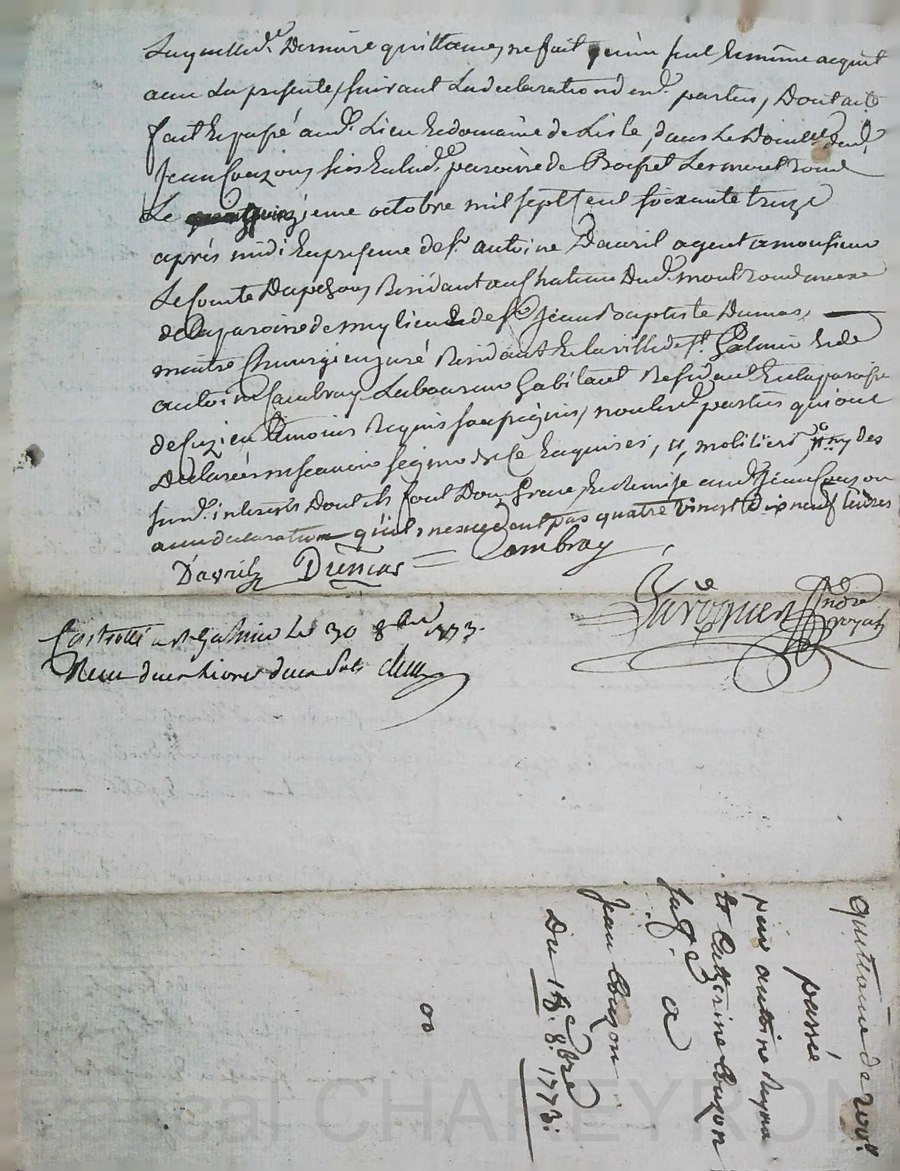 Laquelle d.e derniere quittance, ne fait qu'un seul & même acquit
avec la presente, suivant la declaration desd. parties, Dont acte
fait & passé aud. Lieu & domaine de Lisle, dans le Domicile dud.
Jean Couzon, sis en lad.e paroisse de Boisset Les montrond
Le quinzieme octobre mil sept cent soixante treize
après midi En presence de s.r antoine Davril agent a monsieur
Le Comte Dapchon Residant au Chateau Dud. montrond annexe
de la paroisse de meylieu & de s.r Jean Baptiste Dumas,
maitre Chirurgien juré Residant En la ville de s.t Galmier & de
antoine Cambray Laboureur habitant Residant En la paroisse
de Cuzieu temoins Requis soussignés, non lesd. parties qui ont
Declaré ne scavoir signer de ce Enquises, et mobiliers ny des
susd. interests Dont ils font Don, Grace, & Remise aud. Jean Couzon
avec declaration qu'ils n'excedent pas quatre vingt Dix neuf livres
D'avril Dumas Cambray
Controllé a S.t Galmier Le 30 8bre 1773.
Reçu deux livres deux sols
quittance de 200 ll.
passée
par antoine
et Catherine Couzon
a
Jean Couzon
Du 8.bre 1773.
00
Pascal CHAPEYRON